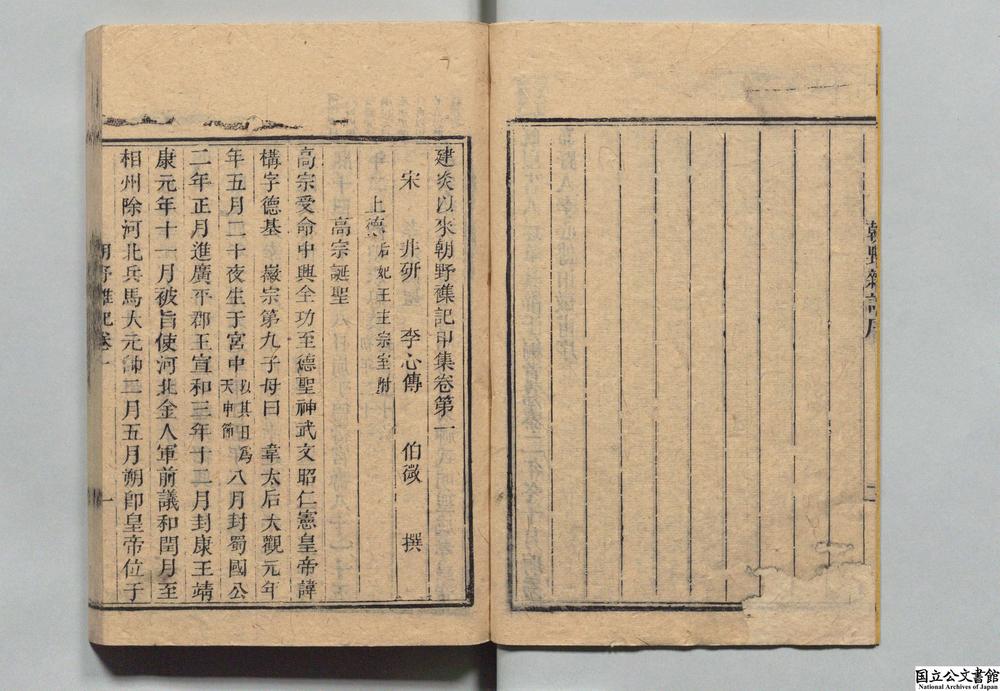 朝野雜記序
二
建炎以來朝野雜記甲集卷第一
宋 井研 李心傳 伯微 撰
上德 后妃王主宗室附
高宗誕聖
高宗受命中興全功至德聖神武文昭仁憲皇帝諱
構字德基 徽宗第九子母曰 韋太后大觀元年
年五月二十夜生于宮中 以其日爲天申節 八月封蜀國公
二年正月進廣平郡王宣和三年十二月封康王靖
康元年十一月被旨使河北金人軍前議和閏月至
相州除河北兵馬大元帥二月五月朔卽皇帝位于
朝野雜記卷一
一
国立公文書館
National Archives of Japan